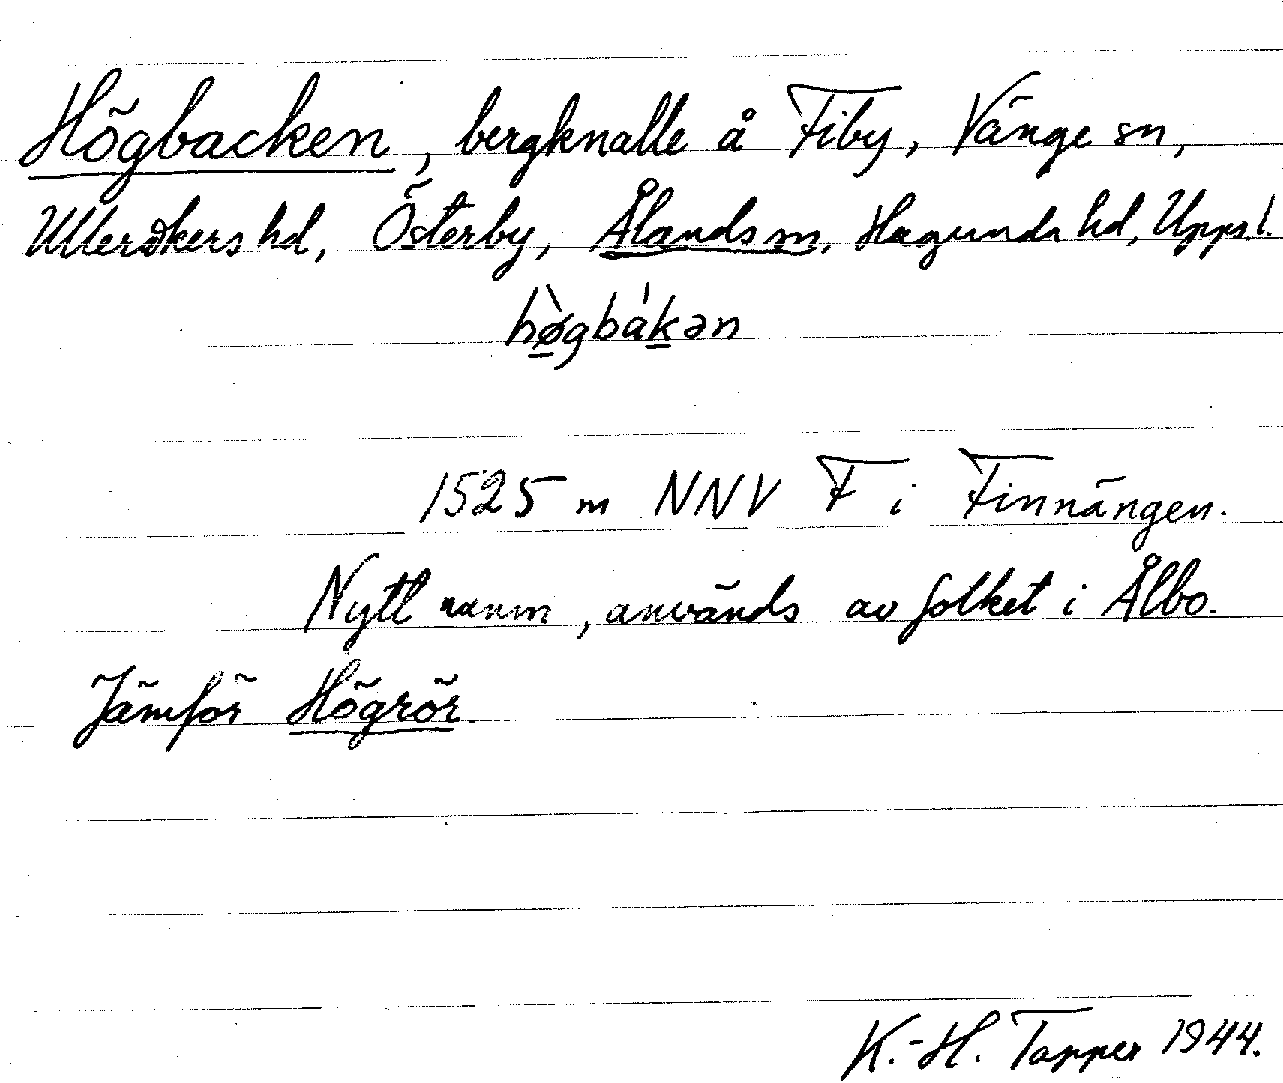 Högbacken, bergknalle å Fiby, Vänge sn,
Ulleråkers hd, Österby, Ålands sn, Hagunda hd, Uppsl.
hø̀gbákən
1525 m NNV F i Finnängen.
Nytt namn, används av folket i Ålbo.
Jämför Högrör.
K.-H. Tapper 1944.